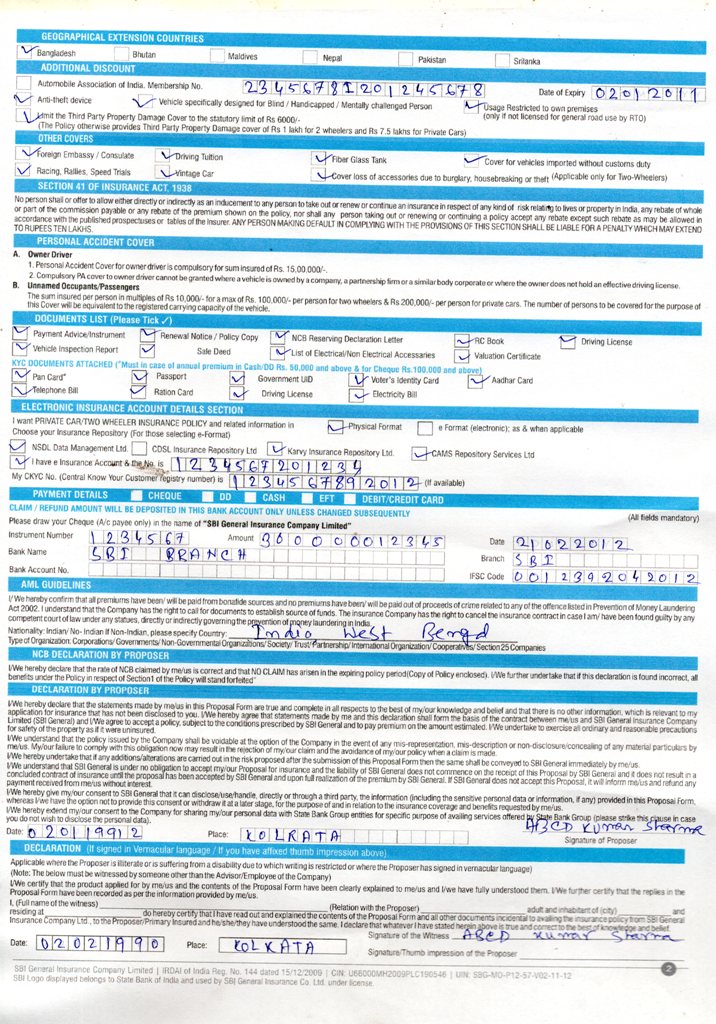 GEOGRAPHICAL EXTENSION COUNTRIES
Bangladesh Bhutan Maldives Nepal Pakistan Srilanka
ADDITIONAL DISCOUNT
Automobile Association of India. Membership No. 23456781201245678 Date of Expiry 02012011
Anti-theft device Vehicle specifically designed for Blind / Handicapped / Mentally challenged Person Usage Restricted to own premises
(only if not licensed for general road use by RTO)
Limit the Third Party Property Damage Cover to the statutory limit of Rs 6000/-
(The Policy otherwise provides Third Party Property Damage cover of Rs 1 lakh for 2 wheelers and Rs 7.5 lakhs for Private Cars)
OTHER COVERS
Foreign Embassy / Consulate Driving Tuition Fiber Glass Tank Cover for vehicles imported without customs duty
Racing, Rallies, Speed Trials Vintage Car Cover loss of accessories due to burglary, housebreaking or theft (Applicable only for Two-Wheelers)
SECTION 41 OF INSURANCE ACT, 1938
No person shall or offer to allow either directly or indirectly as an inducement to any person to take out or renew or continue an insurance in respect of any kind of risk relating to lives or property in India, any rebate of whole
or part of the commission payable or any rebate of the premium shown on the policy, nor shall any person taking out or renewing or continuing a policy accept any rebate except such rebate as may be allowed in
accordance with the published prospectuses or tables of the Insurer. ANY PERSON MAKING DEFAULT IN COMPLYING WITH THE PROVISIONS OF THIS SECTION SHALL BE LIABLE FOR A PENALTY WHICH MAY EXTEND
TO RUPEES TEN LAKHS.
PERSONAL ACCIDENT COVER
A. Owner Driver
1. Personal Accident Cover for owner driver is compulsory for sum insured of Rs. 15,00,000/-.
2. Compulsory PA cover to owner driver cannot be granted where a vehicle is owned by a company, a partnership firm or a similar body corporate or where the owner does not hold an effective driving license.
B. Unnamed Occupants/Passengers
The sum insured per person in multiples of Rs 10,000/- for a max of Rs. 100,000/- per person for two wheelers & Rs 200,000/- per person for private cars. The number of persons to be covered for the purpose of
this Cover will be equivalent to the registered carrying capacity of the vehicle.
DOCUMENTS LIST (Please Tick ✓)
Payment Advice/Instrument Renewal Notice / Policy Copy NCB Reserving Declaration Letter RC Book Driving License
Vehicle Inspection Report Sale Deed List of Electrical/Non Electrical Accessaries Valuation Certificate
KYC DOCUMENTS ATTACHED ("Must in case of annual premium in Cash/DD Rs. 50,000 and above & for Cheque Rs.100,000 and above)
Pan Card" Passport Government UID Voter's Identity Card Aadhar Card
Telephone Bill Ration Card Driving License Electricity Bill
ELECTRONIC INSURANCE ACCOUNT DETAILS SECTION
I want PRIVATE CAR/TWO WHEELER INSURANCE POLICY and related information in Physical Format e Format (electronic); as & when applicable
Choose your Insurance Repository (For those selecting e-Format)
NSDL Data Management Ltd. CDSL Insurance Repository Ltd Karvy Insurance Repository Ltd. CAMS Repository Services Ltd
I have e Insurance Account & the No. is 1234567201234
My CKYC No. (Central Know Your Customer registry number) is 1234567892012 (If available)
PAYMENT DETAILS CHEQUE DD CASH EFT DEBIT/CREDIT CARD
CLAIM / REFUND AMOUNT WILL BE DEPOSITED IN THIS BANK ACCOUNT ONLY UNLESS CHANGED SUBSEQUENTLY
(All fields mandatory)
Please draw your Cheque (A/c payee only) in the name of "SBI General Insurance Company Limited"
Instrument Number 1234567 Amount 300000012345 Date 21022012
Bank Name SBI BRANCH Branch SBI
Bank Account No. IFSC Code 00123920 42012
AML GUIDELINES
I/ We hereby confirm that all premiums have been/ will be paid from bonafide sources and no premiums have been/ will be paid out of proceeds of crime related to any of the offence listed in Prevention of Money Laundering
Act 2002. I understand that the Company has the right to call for documents to establish source of funds. The insurance Company has the right to cancel the insurance contract in case I am/ have been found guilty by any
competent court of law under any statues, directly or indirectly governing the prevention of money laundering in India.
Nationality: Indian/ No- Indian If Non-Indian, please specify Country: India West Bengal
Type of Organization: Corporations/ Governments/ Non-Governmental Organizations/ Society/ Trust/ Partnership/ International Organization/ Cooperatives/ Section 25 Companies
NCB DECLARATION BY PROPOSER
I/We hereby declare that the rate of NCB claimed by me/us is correct and that NO CLAIM has arisen in the expiring policy period(Copy of Policy enclosed). I/We further undertake that if this declaration is found incorrect, all
benefits under the Policy in respect of Section1 of the Policy will stand forfeited"
DECLARATION BY PROPOSER
I/We hereby declare that the statements made by me/us in this Proposal Form are true and complete in all respects to the best of my/our knowledge and belief and that there is no other information, which is relevant to my
application for insurance that has not been disclosed to you. I/We hereby agree that statements made by me and this declaration shall form the basis of the contract between me/us and SBI General Insurance Company
Limited (SBI General) and I/We agree to accept a policy, subject to the conditions prescribed by SBI General and to pay premium on the amount estimated. I/We undertake to exercise all ordinary and reasonable precautions
for safety of the property as if it were uninsured.
I/We understand that the policy issued by the Company shall be voidable at the option of the Company in the event of any mis-representation, mis-description or non-disclosure/concealing of any material particulars by
me/us. My/our failure to comply with this obligation now may result in the rejection of my/our claim and the avoidance of my/our policy when a claim is made.
I/We hereby undertake that if any additions/alterations are carried out in the risk proposed after the submission of this Proposal Form then the same shall be conveyed to SBI General immediately by me/us.
I/We understand that SBI General is under no obligation to accept my/our Proposal for insurance and the liability of SBI General does not commence on the receipt of this Proposal by SBI General and it does not result in a
concluded contract of insurance until the proposal has been accepted by SBI General and upon full realization of the premium by SBI General. If SBI General does not accept this Proposal, it will inform me/us and refund any
payment received from me/us without interest.
I/We hereby give my/our consent to SBI General that it can disclose/use/handle, directly or through a third party, the information (including the sensitive personal data or information, if any) provided in this Proposal Form,
whereas I/we have the option not to provide this consent or withdraw it at a later stage, for the purpose of and in relation to the insurance coverage and benefits requested by me/us.
I/We hereby extend my/our consent to the Company for sharing my/our personal data with State Bank Group entities for specific purpose of availing services offered by State Bank Group (please strike this clause in case
you do not wish to disclose the personal data).
Date: 02011992 Place: KOLKATA ABCD Kumar Sharma
Signature of Proposer
DECLARATION (If signed in Vernacular language / If you have affixed thumb impression above)
Applicable where the Proposer is illiterate or is suffering from a disability due to which writing is restricted or where the Proposer has signed in vernacular language)
(Note: The below must be witnessed by someone other than the Advisor/Employee of the Company)
I/We certify that the product applied for by me/us and the contents of the Proposal Form have been clearly explained to me/us and I/we have fully understood them. I/We further certify that the replies in the
Proposal Form have been recorded as per the information provided by me/us.
I, (Full name of the witness) (Relation with the Proposer) adult and inhabitant of (city) and
residing at do hereby certify that I have read out and explained the contents of the Proposal Form and all other documents incidental to availing the insurance policy from SBI General
Insurance Company Ltd., to the Proposer/Primary Insured and he/she/they have understood the same. I declare that whatever I have stated herein above is true and correct to the best of my knowledge and belief.
Signature of the Witness ABCD Kumar Sharma
Date: 02021990 Place: KOLKATA
Signature/Thumb impression of the Proposer
SBI General Insurance Company Limited | IRDAI of India Reg. No. 144 dated 15/12/2009 | CIN: U66000MH2009PLC190546 | UIN: SBG-MO-P12-57-V02-11-12
SBI Logo displayed belongs to State Bank of India and used by SBI General Insurance Co. Ltd. under license.
2